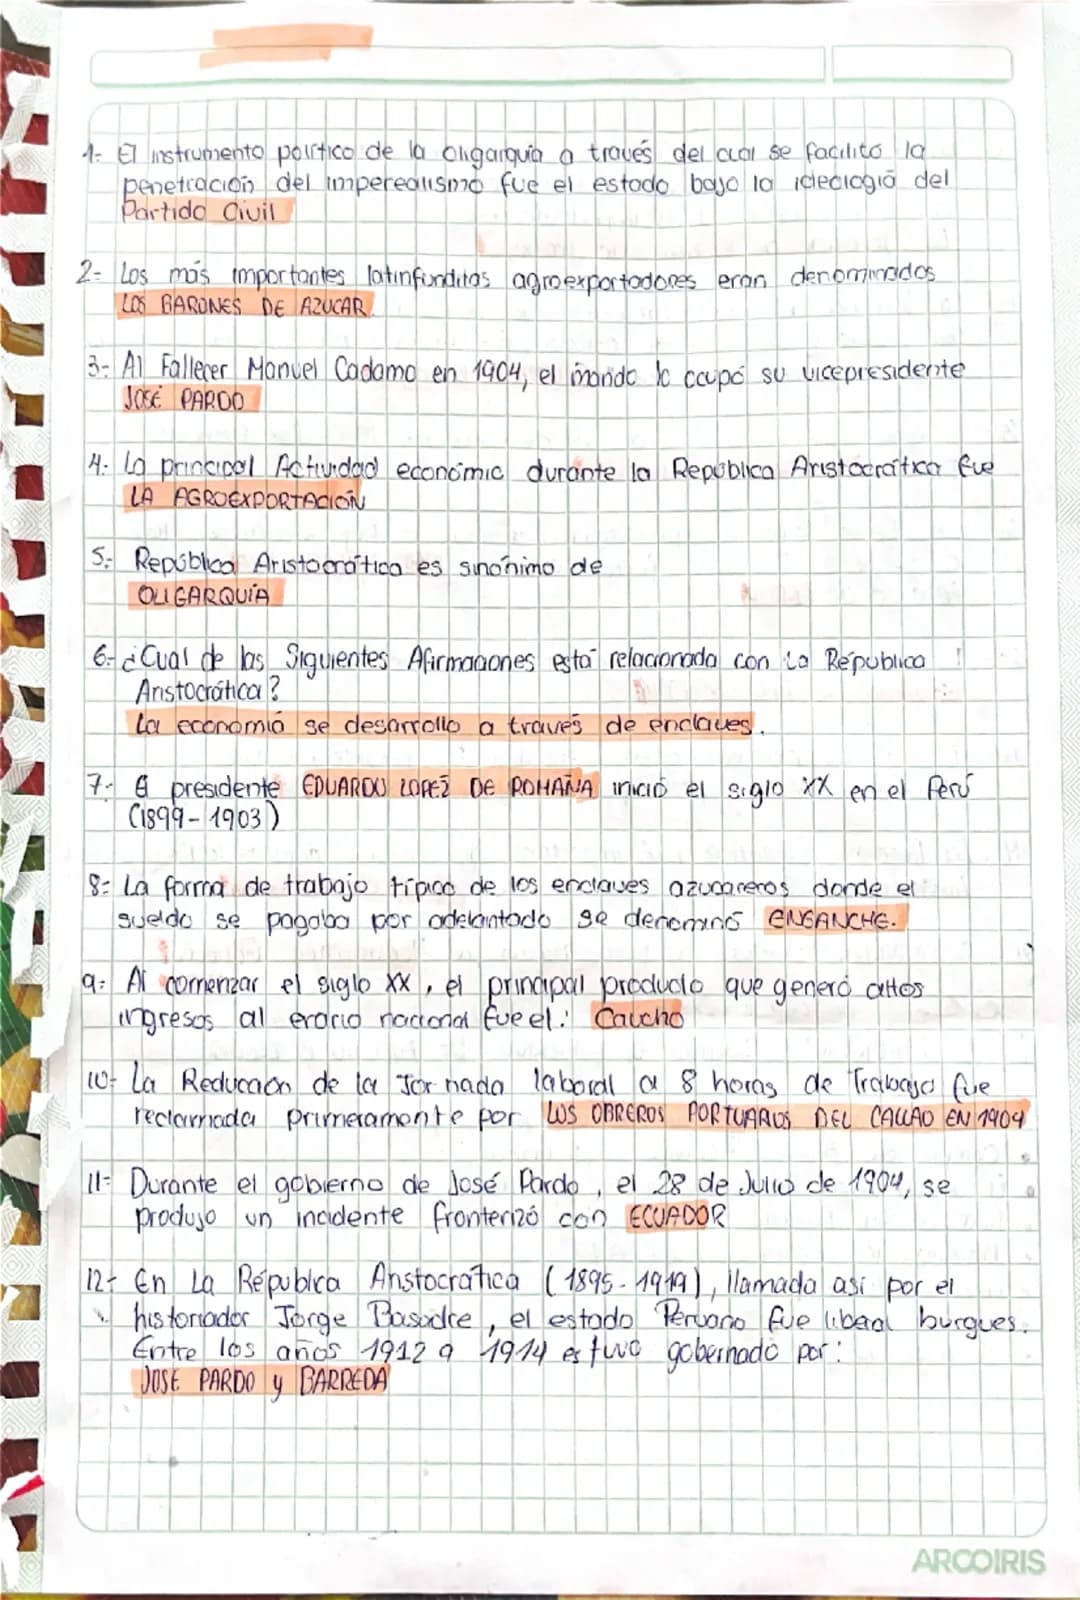 1- El instrumento político de la oligarquia a través del cual se facilitó la
penetración del imperealismo fue el estado bajo la ideología del
Partido Civil
2- Los más importantes latinfunditas agroexportadores eran denominados
LOS BARONES DE AZUCAR.
3- Al Fallecer Manuel Cadamo en 1904, el mando lo ocupó su vicepresidente
JOSÉ PARDO
4- La principal Actividad economic durante la República Aristocrática fue
LA AGROEXPORTACIÓN
5- República Aristocrática es sinónimo de
OLIGARQUÍA
6- ¿Cual de las Siguientes Afirmaciones está relacionada con La República
Aristocrática?
La economía se desarrollo a través de enclaves.
7- El presidente EDUARDO LOPEZ DE ROMAÑA inició el siglo XX en el Perú
(1899-1903)
8- La forma de trabajo típico de los enclaves azucareros donde el
sueldo se pagaba por adelantado se denominó ENGANCHE.
9- Al comenzar el siglo XX, el principal producto que generó altos
ingresos al erario nacional fue el: Caucho
10- La Reducción de la Jornada laboral a 8 horas de Trabajo fue
reclamada primeramente por LOS OBREROS PORTUARIOS DEL CALLAO EN 1904
11- Durante el gobierno de José Pardo, el 28 de Julio de 1904, se
produjo un incidente fronterizó con ECUADOR
12- En La República Aristocrática (1895-1919), llamada asi por el
historiador Jorge Basadre, el estado Peruano fue liberal burgues.
Entre los años 1912 a 1914 estuvo gobernado por:
JOSE PARDO y BARREDA
ARCOIRIS